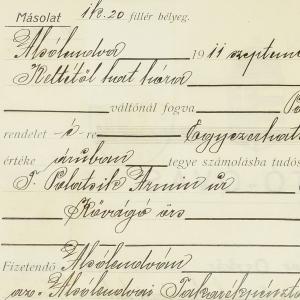 Másolat 1 k. 20 fillér bélyeg.
Alsólendva 1911 szeptem
Kelttől hat hóra
váltónál fogva
rendelet -é- re Egyezerhat
értéke áruban tegye számolásba tudós
T. Polatsik Ármin úr
Kővágó örs
Fizetendő Alsólendván
az Alsólendvai Takarékpénztá